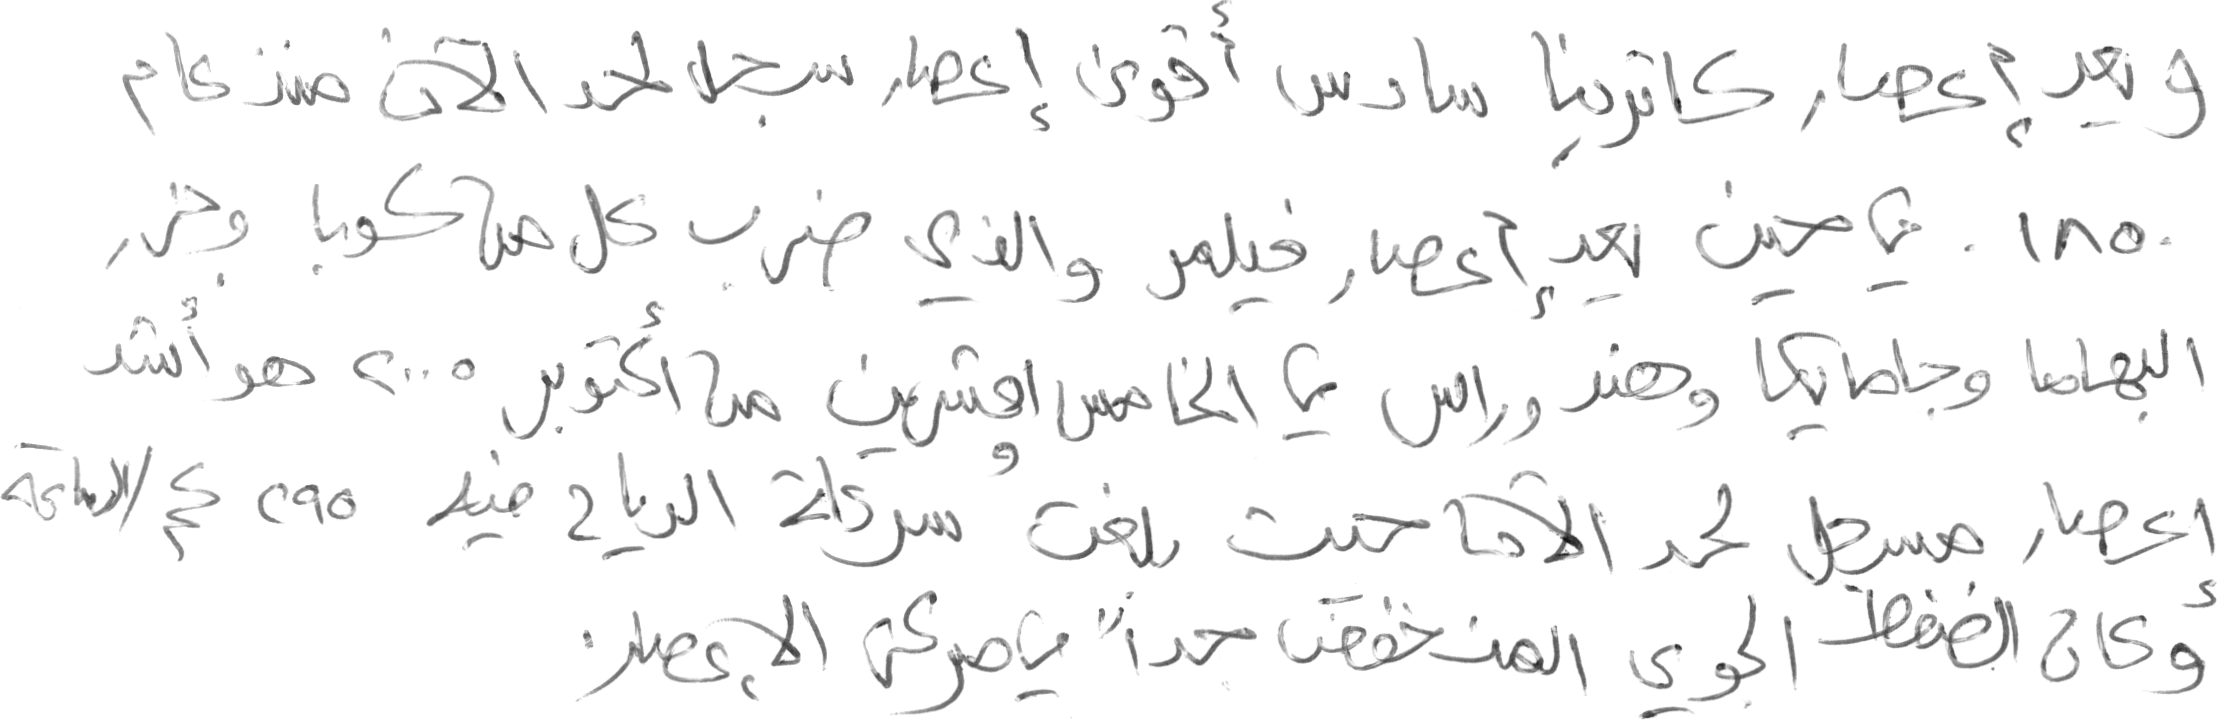 ويعد إعصار كاترينا سادس أقوى إعصار سجل لحد الآن منذ عام
١٨٥٠. في حين يعد إعصار فيلمر والذي ضرب كل من كوبا وجزر
البهاما وجامايكا وهندوراس في الخامس والعشرين من أكتوبر ٢٠٠٥ هو أشد
إعصار مسجل لحد الآن حيث بلغت سرعة الرياح فيه ٢٩٥ كم/الساعة
وكان الضغط الجوي المنخفض جداً في مركز الإعصار.